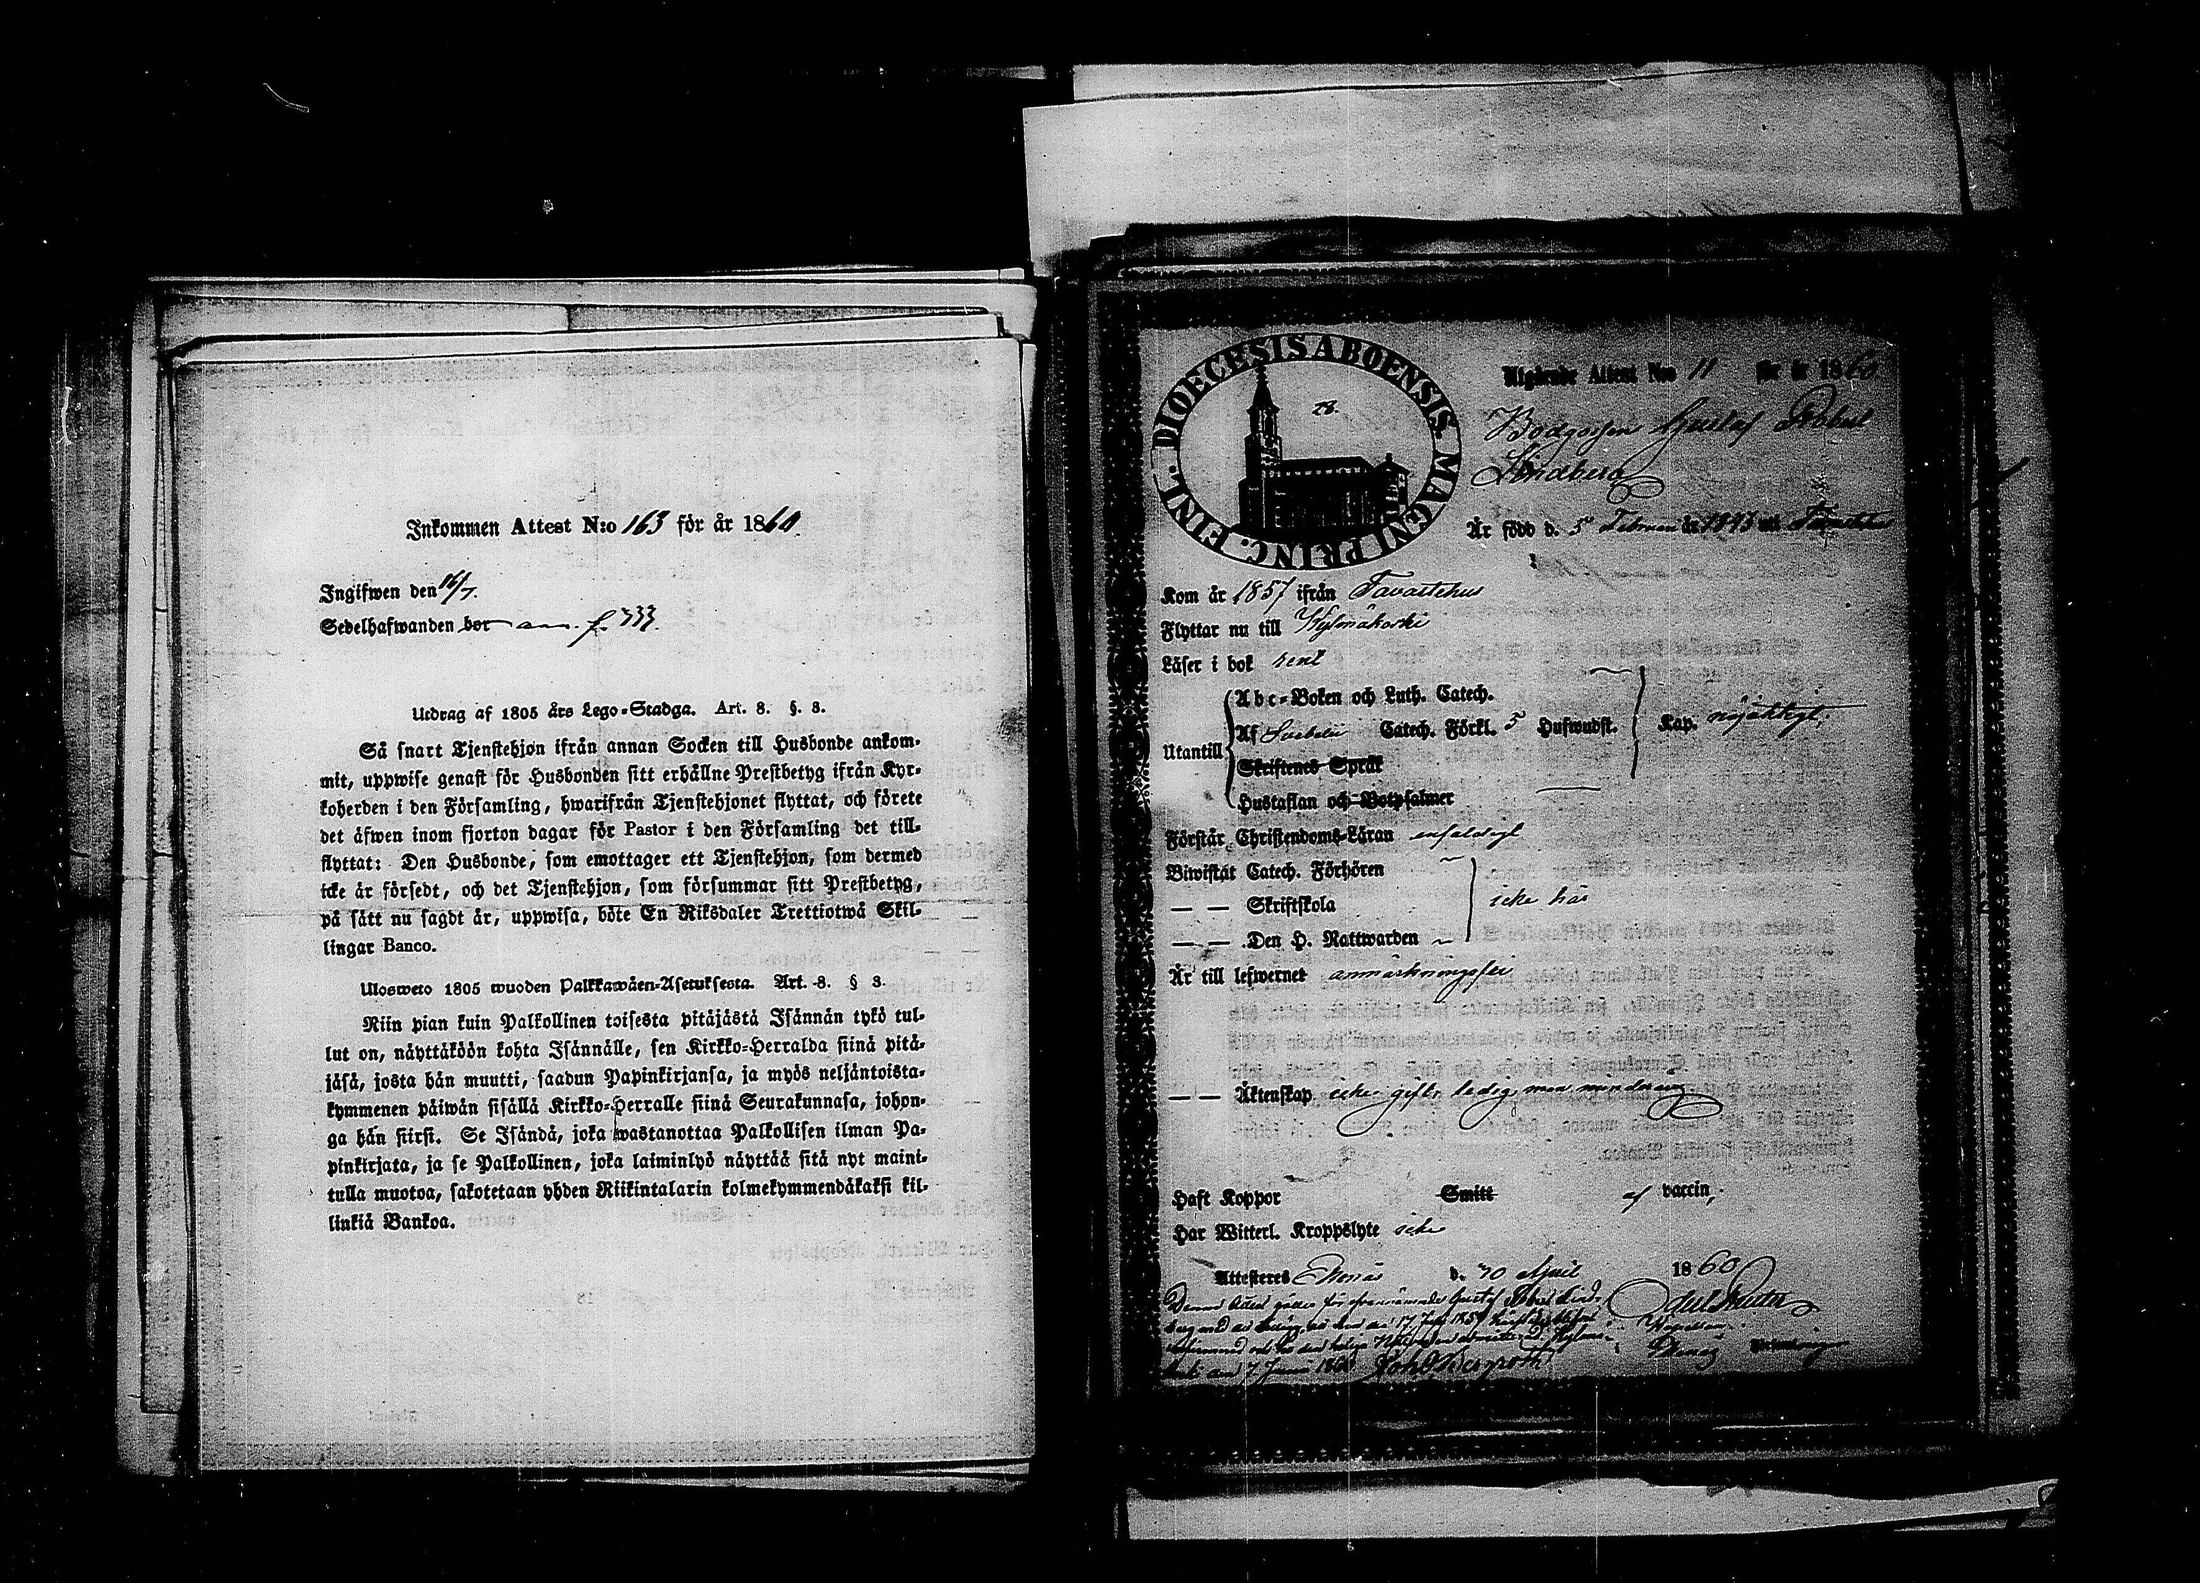 Inkommen Attest N:o 163 för år 1860.
Ingifwen den 16/7.
Sedelhafwanden bor ann. f. 733.
Utdrag af 1805 års Lego-Stadga. Art. 8. §. 3.
Så snart Tjenstehjon ifrån annan Socken till Husbonde ankom-
mit, uppwise genast för Husbonden sitt erhållne Prestbetyg ifrån Kyr-
koherden i den Församling, hwarifrån Tjenstehjonet flyttat, och förete
det äfwen inom fjorton dagar för Pastor i den Församling det till-
flyttat: Den Husbonde, som emottager ett Tjenstehjon, som dermed
icke är försedt, och det Tjenstehjon, som försummar sitt Prestbetyg,
på sätt nu sagdt är, uppwisa, böte En Riksdaler Trettiotwå Skil-
lingar Banco.
Ulosweto 1805 wuoden Palkkawäen-Asetuksesta. Art. 8. § 3.
Niin pian kuin Palkollinen toisesta pitäjästä Isännän tykö tul-
lut on, näyttäköön kohta Isännälle, sen Kirkko-Herralda siinä pitä-
jäsä, josta hän muutti, saadun Papinkirjansa, ja myös neljäntoista-
kymmenen päiwän sisällä Kirkko-Herralle siinä Seurakunnasa, johon-
ga hän siirsi. Se Isändä, joka wastanottaa Palkollisen ilman Pa-
pinkirjata, ja se Palkollinen, joka laiminlyö näyttää sitä nyt maini-
tulla muotoa, sakotetaan yhden Riikintalarin kolmekymmendäkaksi kil-
linkiä Bankoa.
DIOECESIS ABOENSIS MAGNI PRINC. FINL.
28.
Utgående Attest N:o 11 för år 1860
Gustaf Robert
Lindberg
Är född d. 5 Februari år 1843 uti Tavastehus
Kom år 1857 ifrån Tavastehus
Flyttar nu till Kyrmäkoski
Läser i bok rent
Utantill
Abc-Boken och Luth. Catech.
Af Svebelii Catech. Förkl. 5 Hufwudst. Kap. nöjaktigt.
Skriftenes Språk
Hustaflan och Botpsalmer
Förstår Christendoms-Läran enfaldigt
Biwistat Catech. Förhören
— — Skriftskola icke här
— — Den H. Nattwarden
Är till lefwernet anmärkningsfri
— — Äktenskap icke gift, ledig men minderårig
Haft Koppor Smitt af vaccin,
Har Witterl. Kroppslyte icke
Attesteras Ekenäs d. 30 April 1860
Denna Attest gäller för ofvannämnde Gustaf Robert Lind-
Kapellan
Ekenäs